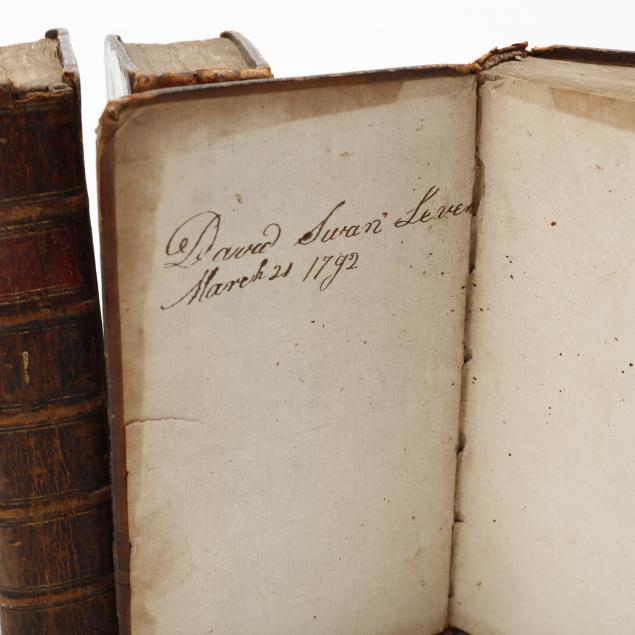 David Swan Leven
March 21 1792
1